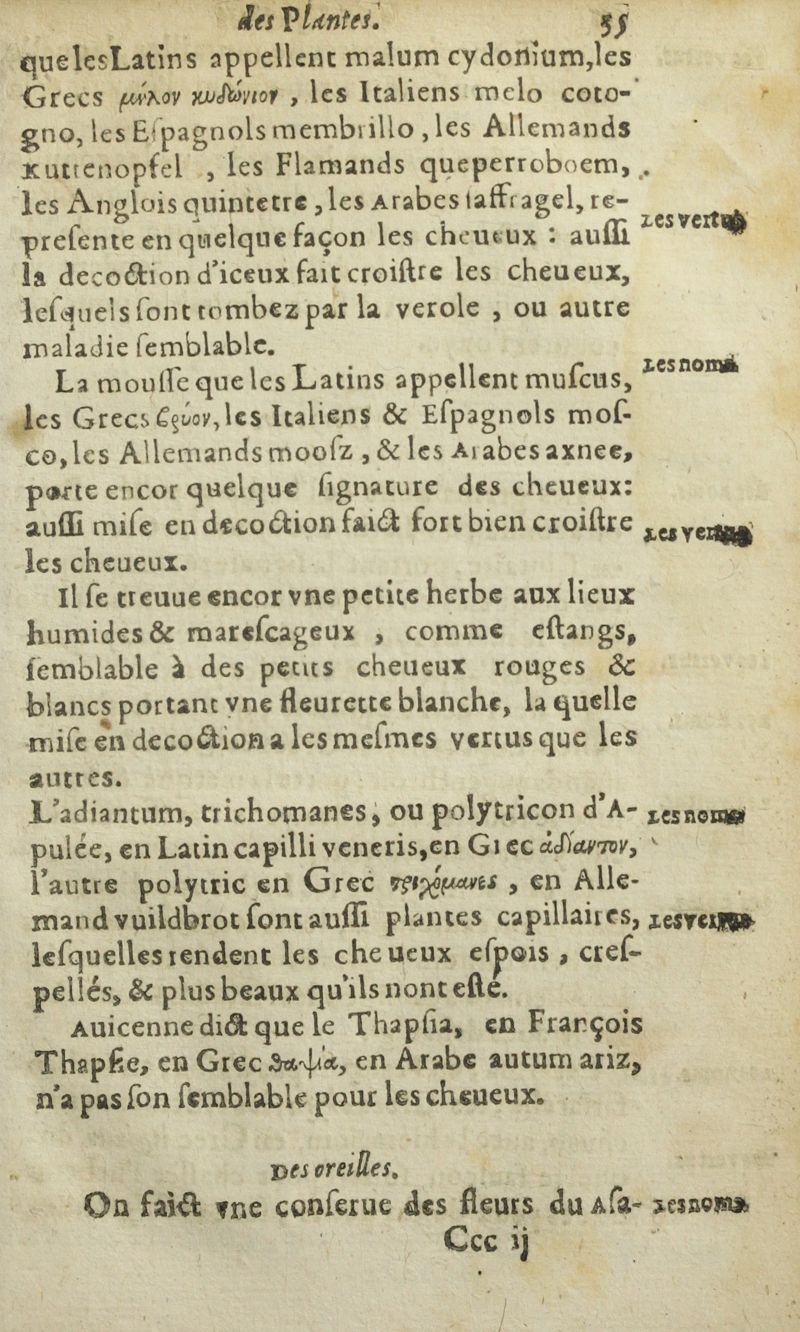 des Plantes. 55
que les Latins appellent malum cydonium, les
Grecs μῆλον κυδώνιον , les Italiens melo coto-
gno, les Eſpagnols membrillo , les Allemands
Kuttenopfel , les Flamands queperroboem,
les Anglois quintetre , les Arabes taffragel, re-
preſente en quelque façon les cheueux : auſſi
Les vertus
la decoction d'iceux fait croiſtre les cheueux,
leſquels ſont tombez par la verole , ou autre
maladie ſemblable.
La mouſſe que les Latins appellent muſcus,
Les noms
les Grecs βρύον, les Italiens & Eſpagnols moſ-
co, les Allemands mooſz , & les Arabes axnee,
porte encor quelque ſignature des cheueux:
auſſi miſe en decoction faict fort bien croiſtre
Les vertus
les cheueux.
Il ſe treuue encor vne petite herbe aux lieux
humides & mareſcageux , comme eſtangs,
ſemblable à des petits cheueux rouges &
blancs portant vne fleurette blanche, la quelle
miſe en decoction a les meſmes vertus que les
autres.
L'adiantum, trichomanes, ou polytricon d'A-
Les noms
pulée, en Latin capilli veneris, en Grec ἀδίαντον,
l'autre polytric en Grec τριχόμανες , en Alle-
mand vuildbrot ſont auſſi plantes capillaires,
Les vertus
leſquelles rendent les cheueux eſpois , creſ-
pellés, & plus beaux qu'ils nont eſté.
Auicenne dict que le Thapſia, en François
Thapſie, en Grec θαψία, en Arabe autum ariz,
n'a pas ſon ſemblable pour les cheueux.
Des oreilles.
On faict vne conſerue des fleurs du Aſa-
Les noms
Ccc ij